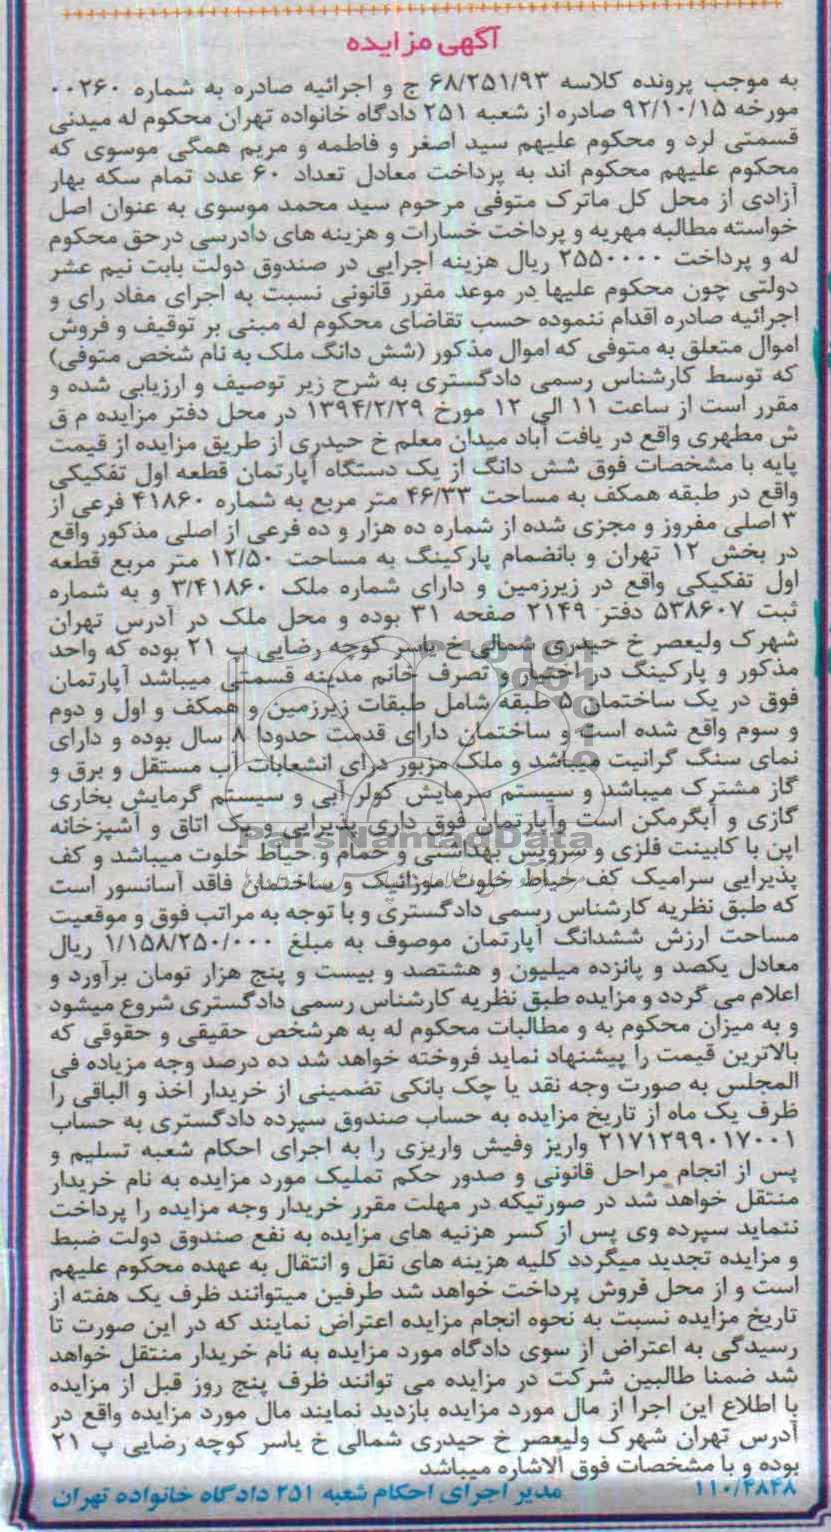 آگهی مزایده
به موجب پرونده کلاسه ۶۸/۲۵۱/۹۳ ج و اجرائیه صادره به شماره ۰۰۲۶۰
مورخه ۹۲/۱۰/۱۵ صادره از شعبه ۲۵۱ دادگاه خانواده تهران محکوم له میدنی
قسمتی لرد و محکوم علیهم سید اصغر و فاطمه و مریم همگی موسوی که
محکوم علیهم محکوم اند به پرداخت معادل تعداد ۶۰ عدد تمام سکه بهار
آزادی از محل کل ماترک متوفی مرحوم سید محمد موسوی به عنوان اصل
خواسته مطالبه مهریه و پرداخت خسارات و هزینه های دادرسی درحق محکوم
له و پرداخت ۲۵۵۰۰۰۰ ریال هزینه اجرایی در صندوق دولت بابت نیم عشر
دولتی چون محکوم علیها در موعد مقرر قانونی نسبت به اجرای مفاد رای و
اجرائیه صادره اقدام ننموده حسب تقاضای محکوم له مبنی بر توقیف و فروش
اموال متعلق به متوفی که اموال مذکور (شش دانگ ملک به نام شخص متوفی)
که توسط کارشناس رسمی دادگستری به شرح زیر توصیف و ارزیابی شده و
مقرر است از ساعت ۱۱ الی ۱۲ مورخ ۱۳۹۴/۲/۲۹ در محل دفتر مزایده م ق
ش مطهری واقع در یافت آباد میدان معلم خ حیدری از طریق مزایده از قیمت
پایه با مشخصات فوق شش دانگ از یک دستگاه آپارتمان قطعه اول تفکیکی
واقع در طبقه همکف به مساحت ۴۶/۳۳ متر مربع به شماره ۴۱۸۶۰ فرعی از
۳ اصلی مفروز و مجزی شده از شماره ده هزار و ده فرعی از اصلی مذکور واقع
در بخش ۱۲ تهران و بانضمام پارکینگ به مساحت ۱۲/۵۰ متر مربع قطعه
اول تفکیکی واقع در زیرزمین و دارای شماره ملک ۳/۴۱۸۶۰ و به شماره
ثبت ۵۳۸۶۰۷ دفتر ۲۱۴۹ صفحه ۳۱ بوده و محل ملک در آدرس تهران
شهرک ولیعصر خ حیدری شمالی خ یاسر کوچه رضایی پ ۲۱ بوده که واحد
مذکور و پارکینگ در اختیار و تصرف خانم مدینه قسمتی میباشد آپارتمان
فوق در یک ساختمان ۵ طبقه شامل طبقات زیرزمین و همکف و اول و دوم
و سوم واقع شده است و ساختمان دارای قدمت حدودا ۸ سال بوده و دارای
نمای سنگ گرانیت میباشد و ملک مزبور درای انشعابات آب مستقل و برق و
گاز مشترک میباشد و سیستم سرمایش کولر آبی و سیستم گرمایش بخاری
گازی و آبگرمکن است وآپارتمان فوق داری پذیرایی و یک اتاق و آشپزخانه
اپن با کابینت فلزی و سرویس بهداشتی و حمام و حیاط خلوت میباشد و کف
پذیرایی سرامیک کف حیاط خلوت موزائیک و ساختمان فاقد آسانسور است
که طبق نظریه کارشناس رسمی دادگستری و با توجه به مراتب فوق و موقعیت
مساحت ارزش ششدانگ آپارتمان موصوف به مبلغ ۱/۱۵۸/۲۵۰/۰۰۰ ریال
معادل یکصد و پانزده میلیون و هشتصد و بیست و پنج هزار تومان برآورد و
اعلام می گردد و مزایده طبق نظریه کارشناس رسمی دادگستری شروع میشود
و به میزان محکوم به و مطالبات محکوم له به هرشخص حقیقی و حقوقی که
بالاترین قیمت را پیشنهاد نماید فروخته خواهد شد ده درصد وجه مزیاده فی
المجلس به صورت وجه نقد یا چک بانکی تضمینی از خریدار اخذ و الباقی را
ظرف یک ماه از تاریخ مزایده به حساب صندوق سپرده دادگستری به حساب
۲۱۷۱۲۹۹۰۱۷۰۰۱ واریز وفیش واریزی را به اجرای احکام شعبه تسلیم و
پس از انجام مراحل قانونی و صدور حکم تملیک مورد مزایده به نام خریدار
منتقل خواهد شد در صورتیکه در مهلت مقرر خریدار وجه مزایده را پرداخت
ننماید سپرده وی پس از کسر هزنیه های مزایده به نفع صندوق دولت ضبط
و مزایده تجدید میگردد کلیه هزینه های نقل و انتقال به عهده محکوم علیهم
است و از محل فروش پرداخت خواهد شد طرفین میتوانند ظرف یک هفته از
تاریخ مزایده نسبت به نحوه انجام مزایده اعتراض نمایند که در این صورت تا
رسیدگی به اعتراض از سوی دادگاه مورد مزایده به نام خریدار منتقل خواهد
شد ضمنا طالبین شرکت در مزایده می توانند ظرف پنج روز قبل از مزایده
با اطلاع این اجرا از مال مورد مزایده بازدید نمایند مال مورد مزایده واقع در
آدرس تهران شهرک ولیعصر خ حیدری شمالی خ یاسر کوچه رضایی پ ۲۱
بوده و با مشخصات فوق الاشاره میباشد
۱۱۰/۴۸۴۸ مدیر اجرای احکام شعبه ۲۵۱ دادگاه خانواده تهران
ParsNamadData